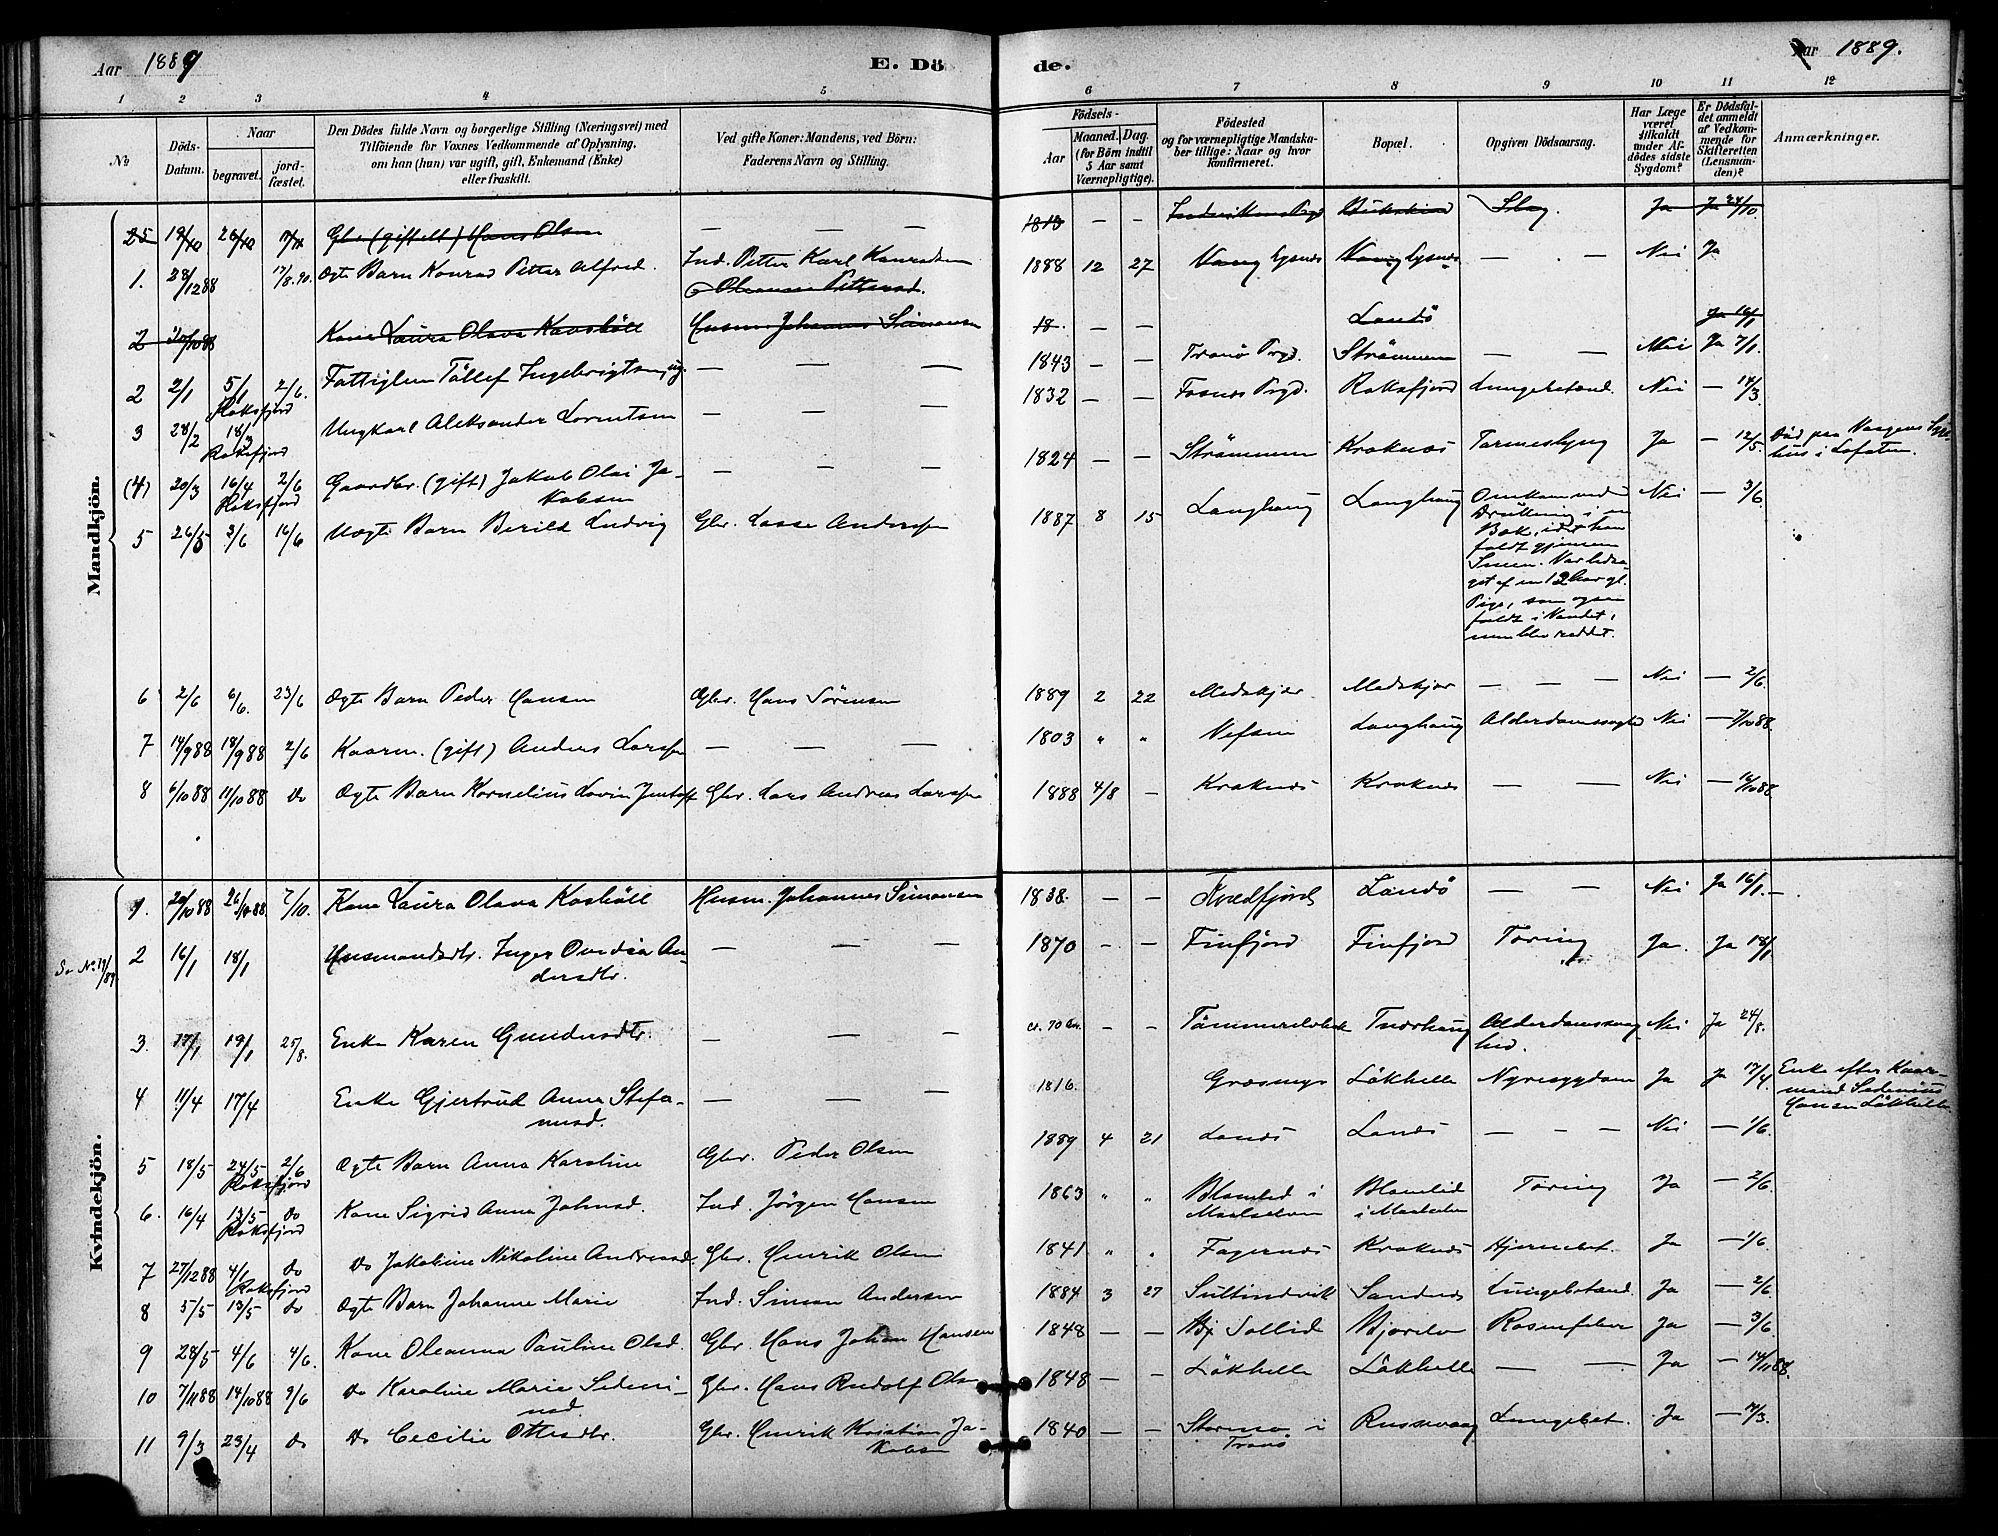 Aar 1889
E. Dö
de.
Aar 1889.
1 2 3 4 5 6 7 8 9 10 11 12
No
Döds-Datum.
Naar
begravet.
jord-fæstet.
Den Dödes fulde Navn og borgerlige Stilling (Næringsvei) med
Tilföiende for Voxnes Vedkommende af Oplysning,
om han (hun) var ugift, gift, Enkemand (Enke)
eller fraskilt.
Ved gifte Koner: Mandens, ved Börn:
Faderens Navn og Stilling.
Födsels-
Aar
Maaned. Dag.
(for Börn indtil
5 Aar samt
Værnepligtige).
Födested
og for værnepligtige Mandska-
ber tillige: Naar og hvor
konfirmeret.
Bopæl.
Opgiven Dödsaarsag.
Har Læge
været
tilkaldt
under Af-
dödes sidste
Sygdom?
Er Dödsfal-
det anmeldt
af Vedkom-
mende for
Skifteretten
(Lensman-
den)?
Anmærkninger.
Mandkjön.
25 19/10 26/10 Gbr (gift) Hans Olsen — — — 1813 — — Ja Ja 28/10.
1. 28/12 88 17/8.90. Ægte Barn Konrad Petter Alfred. Ind. Petter Karl Konradsen 1888 12 27 Vang Lysnes Vang Lysnes — — Nei Ja
Oleanna Pettersd.
2 Kone Laura Olava Kaasböll Husm. Johannes Simonsen 18 — — Landö Ja 16/1
2 2/1 5/1 2/6. Fattiglem Tollef Ingebrigtsen ug. — — — 1843 — — Tranö Prgd. Strömmen — — Nei Ja 7/1.
Roksfjord
3 28/2 18/3 Ungkarl Aleksander Lorentsen — — — 1832 — — Fosnes Prgd. Roksfjord Lungebetænd. Nei — 14/3
Roksfjord
(4) 20/3 16/4 2/6 Gaardbr. (gift) Jakob Olai Ja-
kobsen — — — 1824 — — Strömmen Kraknes Tarmeslyng Ja — 12/5. Död paa Vaagens Syge-
hus i Lofoten.
Roksfjord
5 26/5 3/6 16/6 Uægte Barn Berild Ludvig Gbr. Lasse Anderssen 1887 8 15 Langhaug Langhaug Omkom ved Nei — 3/6
Drukning i en
Bæk, idet han
faldt gjennem
Sneen. Var ledsa-
get af en 12 Aar gl.
Pige, som ogsaa
faldt i Vandet,
men blev reddet.
6 2/6 6/6. 23/6 Ægte Barn Peder Hansen Gbr. Hans Sörensen 1889 2 22 Medskjær Medskjær — — — Nei — 2/6.
7 14/9 88 18/9 88 2/6 Kaarm. (gift) Anders Larssen — — — 1803 " " Vefsen Langhaug Alderdomssvaghed Nei — 7/10 88.
8 6/10 88 11/10 88 Do Ægte Barn Kornelius Lovin Jentoft Gbr. Lars Andreas Larssen 1888 4/8 — Kraknes Kraknes — — Nei — 16/10 88.
Kvindekjön.
1. 20/10 88 26/10 88 7/10. Kone Laura Olava Kasböll Husm. Johannes Simonsen 1838. — — Kvedfjord Landö — — Nei Ja 16/1. —
Se No 19/89
2 16/1 18/1 Husmandsdtr. Inger Ovedia An-
dersdtr. — — — 1870 — — Finfjord Finfjord Tæring Ja. Ja 18/1
3. 17/1 19/1 25/8. Enke Karen Gundersdtr. — — — ca. 70 Aar. — — Alderdomssvag-
hed. Nei Ja 24/8.
4 11/4 17/4 Enke Gjertrud Anna Stefa-
nusd. — — — 1816. Græsmyr Løkhelle Nyresygdom Ja Ja 17/4. Enke efter Kaar-
mand Sedenius
Hansen Løkhelle
5 18/5 24/5 2/6 Ægte Barn Anna Karoline Gbr. Peder Olsen 1889 4 21 Landö Landö — — — Nei — 1/6.
Roksfjord
6. 16/4 13/5 Do Kone Sigrid Anna Johnsd. Ind. Jørgen Hansen 1863 " " i
Maalselven i Maalselven Tæring Ja — 2/6.
Roksfjord
7 27/12 88 4/1 Do Do Jakobine Nikoline Andreasd. Gbr. Henrik Olsen 1841 " " Fagernes Kraknes Hjernebet. Ja — 1/6.
Roksfjord
8 5/5 13/5 do Ægte Barn Johanne Marie Ind. Simon Andersen 1884 3 27 Sultindvik Sandnes Lungebetænd. Ja — 2/6.
9 28/5 4/6 4/6. Kone Oleanna Pauline Olsd. Gbr. Hans Johan Hansen 1848 — — Sollid Bjorelv Rosenfeber Ja — 3/6.
10 7/11 88 14/10 88 9/6 Do Karoline Marie Sedeni-
usd. Gbr. Hans Rudolf Olsen 1848 — — Løkhelle Løkhelle — — Ja — 14/11 88.
11 9/3 23/4 Do Do Cecilie Ottesdtr. Gbr. Henrik Kristian Ja-
kobsen 1840 — — Stormo i
Tranö Russevaag Lungebet. Ja — 7/3.